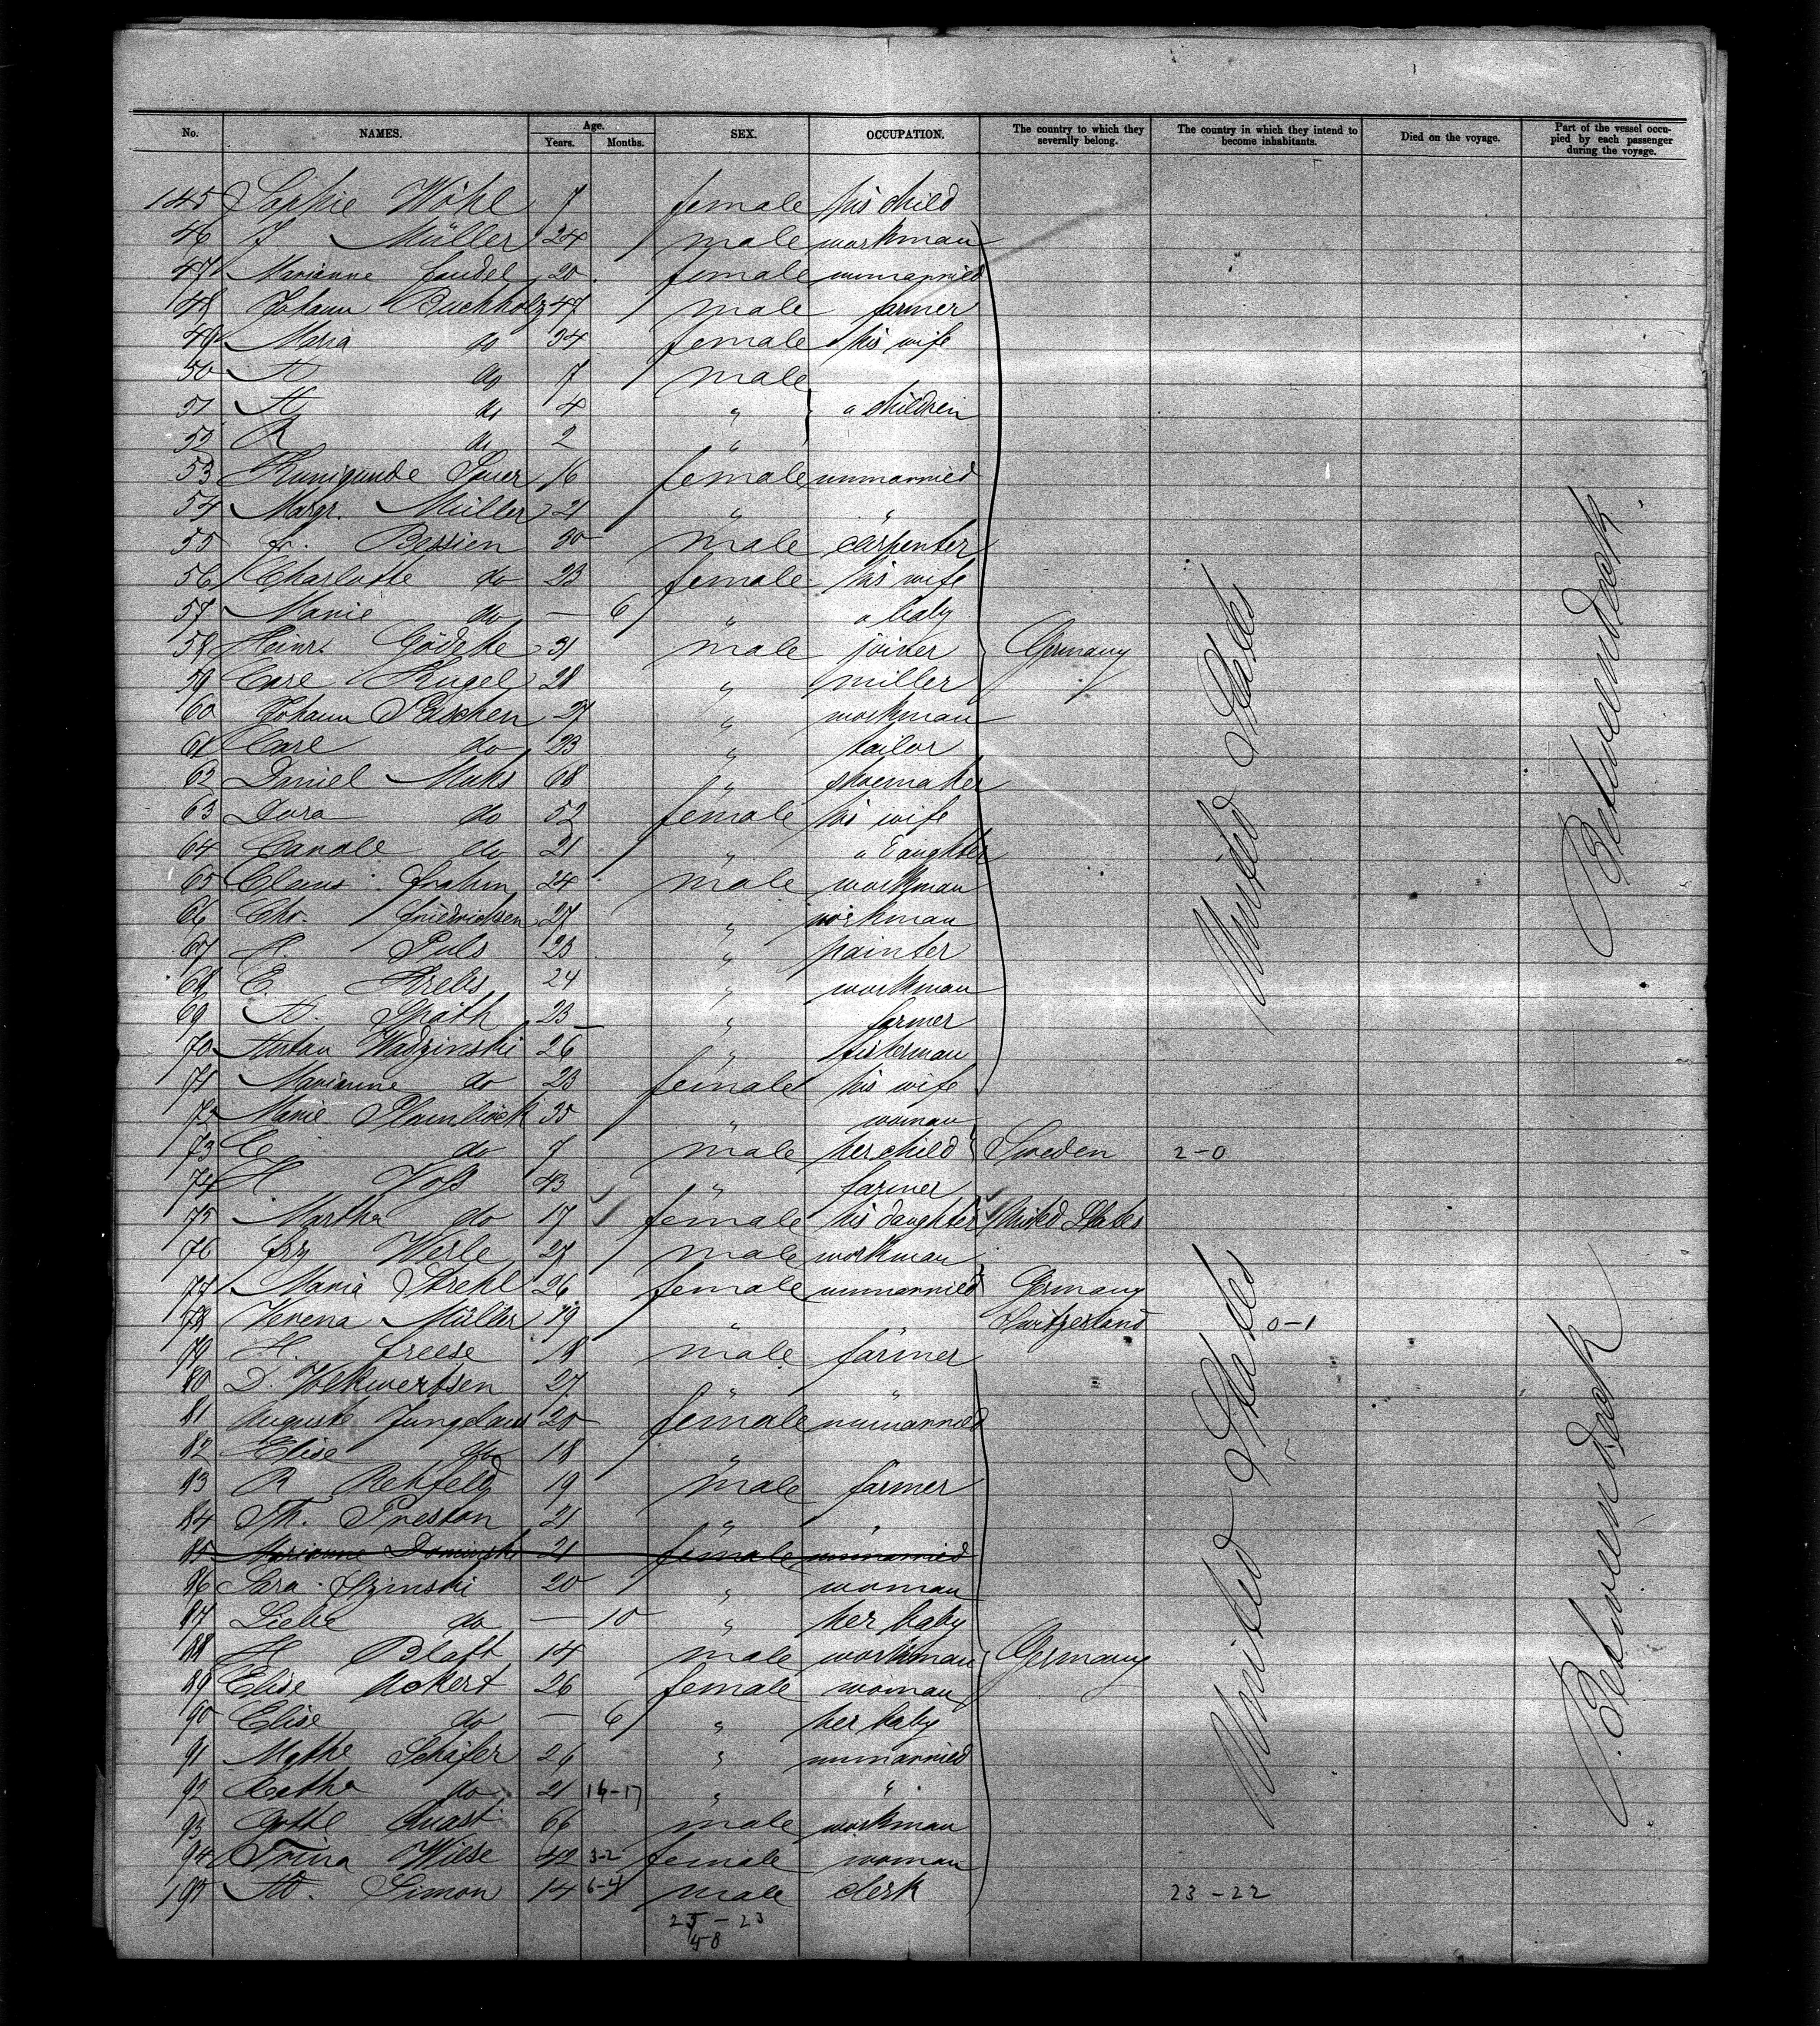 No. NAMES. Age. Years. Months. SEX. OCCUPATION. The country to which they severally belong. The country in which they intend to become inhabitants. Died on the voyage. Part of the vessel occupied by each passenger during the voyage.
145 Sophie Wöhl 7 female his child
46 J Müller 24 male workman
47 Marianne 20 female unmarried
48 Johann Buchholz 47 male farmer
49 Maria do 34 female his wife
50 A do 7 male
51 A do 4 " " children
52 R do 2 "
53 Kunigunde Sauer 16 female unmarried
54 Margr. Müller 21 " "
55 Fr. Bessien 30 male carpenter
56 Charlotte do 23 female his wife
57 Marie do — 6 " " baby
58 Heinr. Gödeke 31 male joiner Germany
59 Carl Kugel 28 " miller
60 Johann Paschen 27 " workman
61 Carl do 23 " tailor
62 Daniel Muhs 68 " shoemaker
63 Dora do 52 female his wife
64 do 21 " " daughter
65 Claus Frahm 24 male workman
66 Chr. Friedrichsen 27 " workman
67 H. Puls 23 " painter
68 E. Krebs 24 " workman
69 A. Späth 23 " farmer
70 Anton Wadzinski 26 " fisherman
71 Marianne do 23 female his wife
72 Marie Plamböck 35 " woman
73 C do 7 male her child Sweden 2-0
74 H Voß 43 " farmer
75 Martha do 17 female his daughter United States
76 Frz Werle 27 male workman
77 Maria Strehl 26 female unmarried Germany
78 Verena Müller 19 " " Switzerland 0-1
79 H. Freese 18 male farmer
80 D. Vekwertsen 27 " "
81 Auguste Jungclaus 20 female unmarried
82 Elise do 18 "
83 R Rehfeld 19 male farmer
84 Th. Preston 21 " "
85 Marianne Dominski 21 female unmarried
86 Sara Szinski 20 " woman
87 Liebe do — 10 " her baby
88 H Blaft 14 male workman Germany
89 Elise Ackert 26 female woman
90 Elise do — 6 " her baby
91 Mathe Schäfer 26 " unmarried
92 Catha do 21 16-17 " "
93 Gottl Quast 66 male workman
94 Trina Wiese 42 3-2 female woman
195 Ad. Simon 14 6-4 male clerk 23-22
25-23
48
United States
Betweendeck
United States
Betweendeck